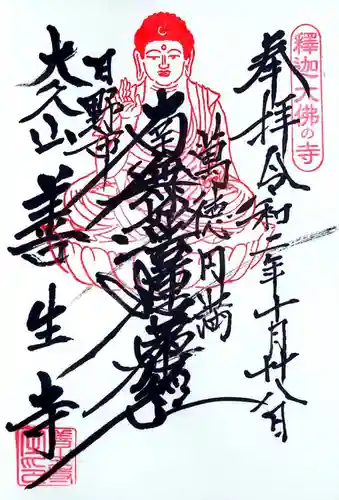 釋迦大佛の寺
奉拝 令和二年十月廿八日
萬徳円満
南無妙法蓮華経
日野市
大久山
善生寺